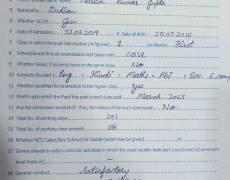 Naresh Kumar Gupta
3. Nationality Indian
4. Whether SC/ST Gen
5. Date of Admission 22.03.2019 6. Date of Birth 25.07.2018
7. Class in which the pupil last studied (in figures) 1 (in Words) First
8. School/Board Annual examination last taken with CBSE
9. Whether failed, if so/once/twice in the same class No
10. Subjects Studied 1. Eng 2. Hindi 3. Maths 4. Pbi 5. 
11. Whether qualified for promotion to the higher class yes
12. Month upto which the Pupil has paid school dues paid March 2023
13. Any fee concession availed of : if so, the nature of such concession No
14. Total No. of working days 201
15. Total No. of working days present 186
16. Whether NCC Cadet/Boy Scout/Girl Guide (detail may be given) -
17. Games played or extra curricular activities in which the pupil usually took part (mentioned achievement
level there in) -
18. General conduct Satisfactory